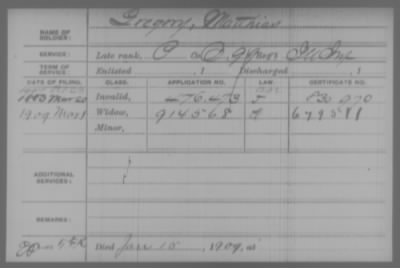 NAME OF SOLDIER: Gregory, Matthias
SERVICE: Late rank, P Co. D, 9 Reg't Ill Inf
TERM OF SERVICE: Enlisted , 1 Discharged , 1
DATE OF FILING. CLASS. APPLICATION NO. LAW. CERTIFICATE NO.
1883 Mar 20 Invalid, 476.473
1909 Widow, 914568 679511
Minor,
ADDITIONAL SERVICES:
REMARKS:
Died Jan 15, 1909, at